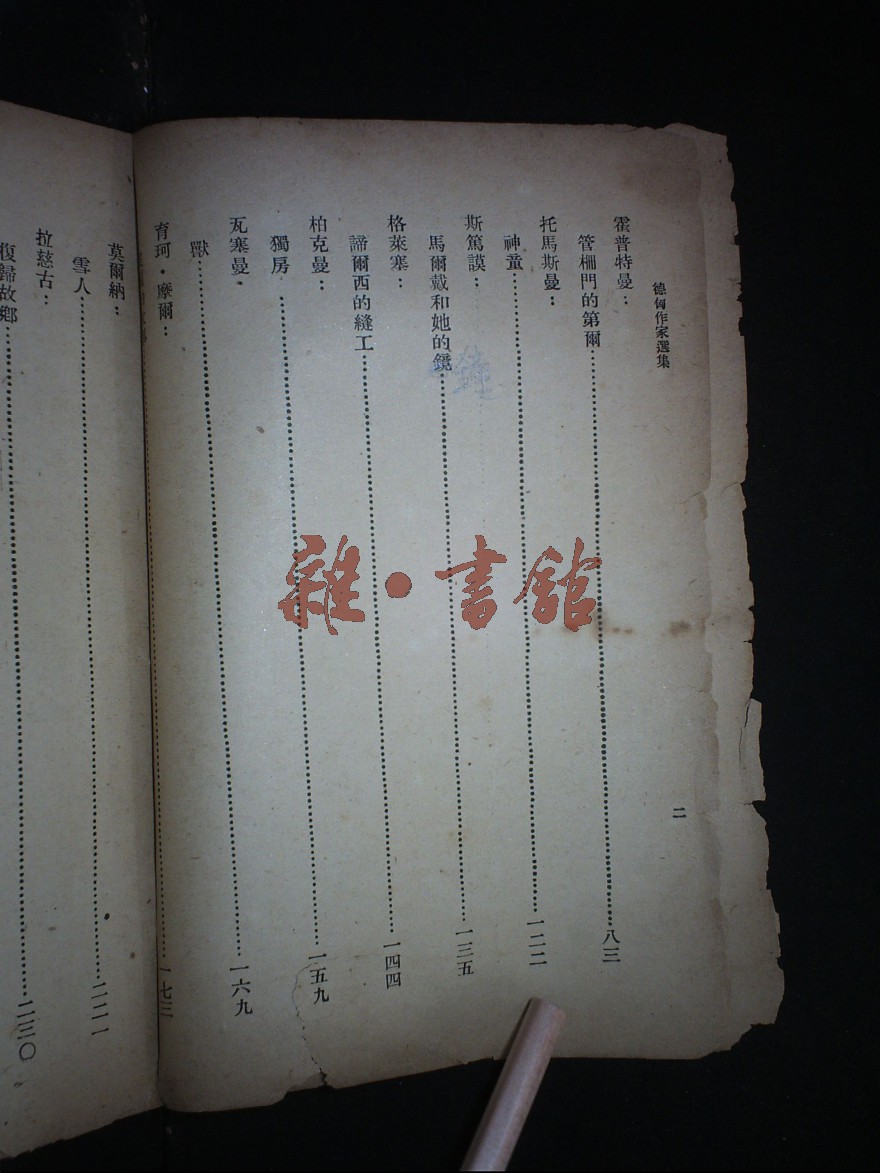 德匈作家選集
二
霍普特曼：
管柵門的第爾……八三
托馬斯曼：
神童……一二二
斯篤謨：
馬爾戴和她的鐘……一三五
格萊塞：
諦爾西的縫工……一四四
柏克曼：
獨房……一五九
瓦塞曼：
獸……一六九
育珂·摩爾：
……一七三
莫爾納：
雪人……二二一
拉慈古：
復歸故鄉……二三〇
雜·書館